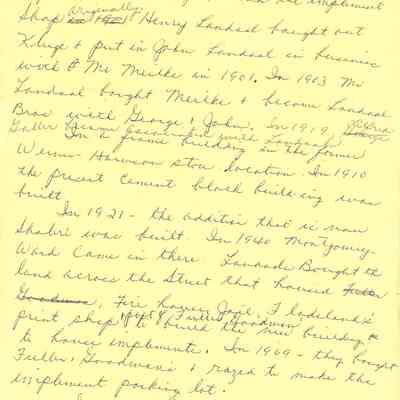 implement
Shop in 1901 Originally Henry Landaal bought out
Kluge & put in John Landaal in business
with Mr Meilke in 1901. In 1903 Mr
Landaal bought Meilke & became Landaal
Bros with George & John. In 1919,
Faller became associated with Landaals
In to frame building in the former
Werner Harmson store location. In 1910
the present cement block building was
built.
In 1921 - the addition that is now
Shabri was built. In 1940 Montgomery-
Ward Came in there. Landaals Bought the
land across the street that housed Fuller
Goodmans, Fire house, Joyl. Flodeland's
print shop, part of Fuller Goodman to build the new building
to house implements. In 1969 - they bought
Fuller, Goodman's & razed to make the
implement parking lot.